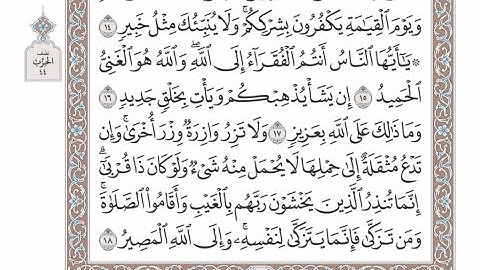 وَيَوْمَ ٱلْقِيَٰمَةِ يَكْفُرُونَ بِشِرْكِكُمْ ۚ وَلَا يُنَبِّئُكَ مِثْلُ خَبِيرٍ ١٤
۞ يَٰٓأَيُّهَا ٱلنَّاسُ أَنتُمُ ٱلْفُقَرَآءُ إِلَى ٱللَّهِ ۖ وَٱللَّهُ هُوَ ٱلْغَنِىُّ
ٱلْحَمِيدُ ١٥ إِن يَشَأْ يُذْهِبْكُمْ وَيَأْتِ بِخَلْقٍ جَدِيدٍ ١٦
وَمَا ذَٰلِكَ عَلَى ٱللَّهِ بِعَزِيزٍ ١٧ وَلَا تَزِرُ وَازِرَةٌ وِزْرَ أُخْرَىٰ ۚ وَإِن
تَدْعُ مُثْقَلَةٌ إِلَىٰ حِمْلِهَا لَا يُحْمَلْ مِنْهُ شَىْءٌ وَلَوْ كَانَ ذَا قُرْبَىٰٓ ۗ
إِنَّمَا تُنذِرُ ٱلَّذِينَ يَخْشَوْنَ رَبَّهُم بِٱلْغَيْبِ وَأَقَامُوا۟ ٱلصَّلَوٰةَ ۚ
وَمَن تَزَكَّىٰ فَإِنَّمَا يَتَزَكَّىٰ لِنَفْسِهِۦ ۚ وَإِلَى ٱللَّهِ ٱلْمَصِيرُ ١٨
نصف
الحزب
٤٤